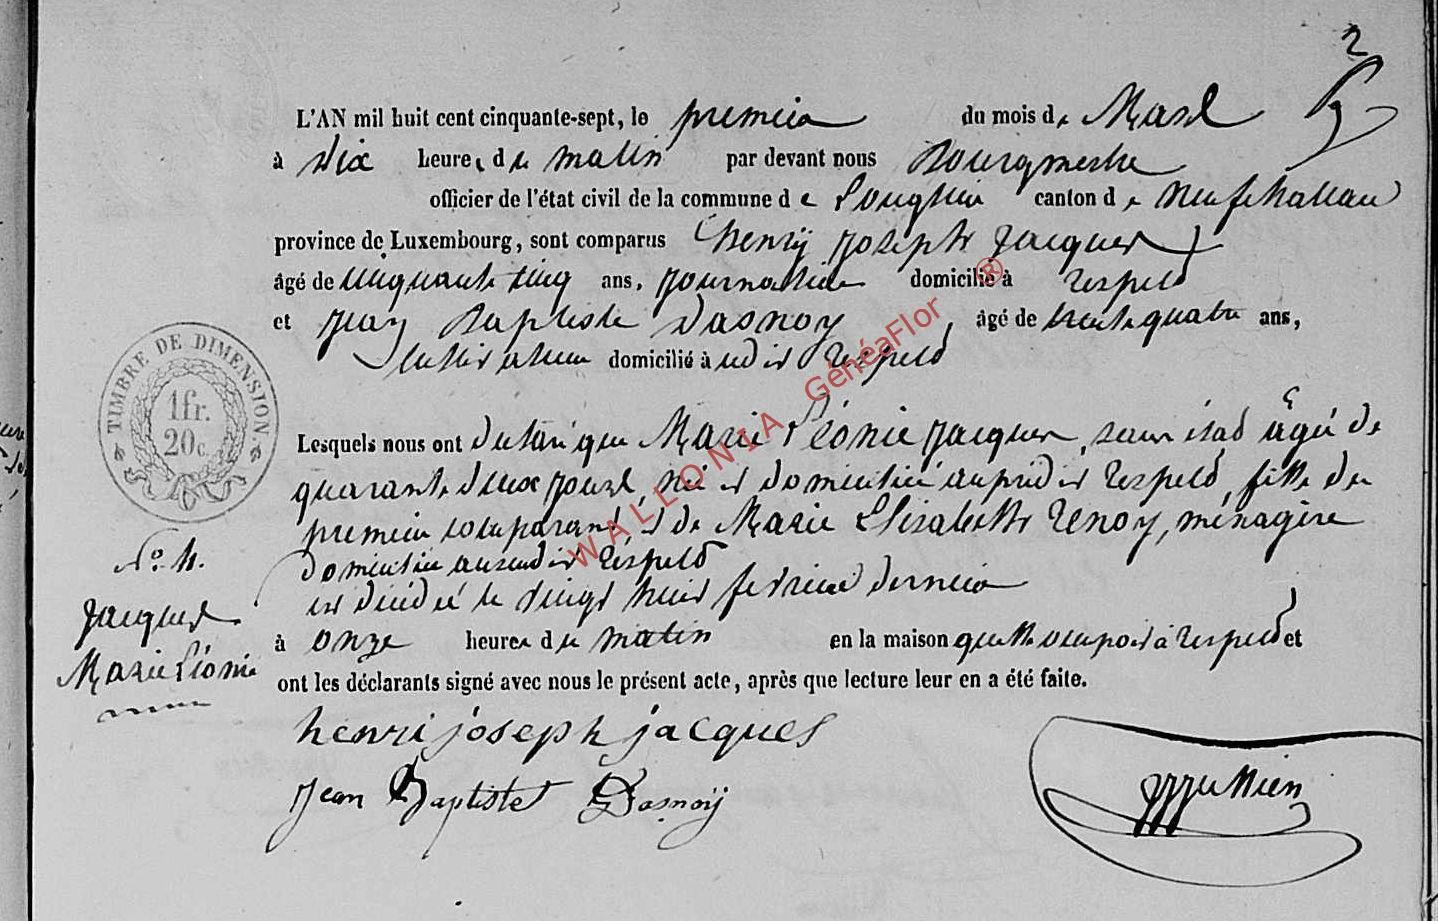 2
L'AN mil huit cent cinquante-sept, le premier du mois de Mars
à dix heures du matin par devant nous Bourgmestre
officier de l'état civil de la commune de Longlier canton de Neufchateau
province de Luxembourg, sont comparus henry joseph jacques
âgé de cinquante cinq ans, journalier domicilié à respelt
et jean Baptiste Dasnoy, âgé de trente quatre ans,
cultivateur domicilié à udit Respelt
Lesquels nous ont declaré que Marie Léonie jacques, sans état âgée de
quarante deux jours, née et domiciliée au prédit respelt, fille du
premier comparant et de Marie Elisabeth Renoy, ménagère
domiciliée aussudit respelt
est décédée le vingt huit fevrier dernier
à onze heures du matin en la maison qu'elle occupoit à respelt et
ont les déclarants signé avec nous le présent acte, après que lecture leur en a été faite.
henri joseph jacques
jean Baptiste Dasnoÿ
TIMBRE DE DIMENSION.
1 fr.
20 c.
No. 4.
jacques
Marie Léonie
WALLONIA GénéaFlor ®